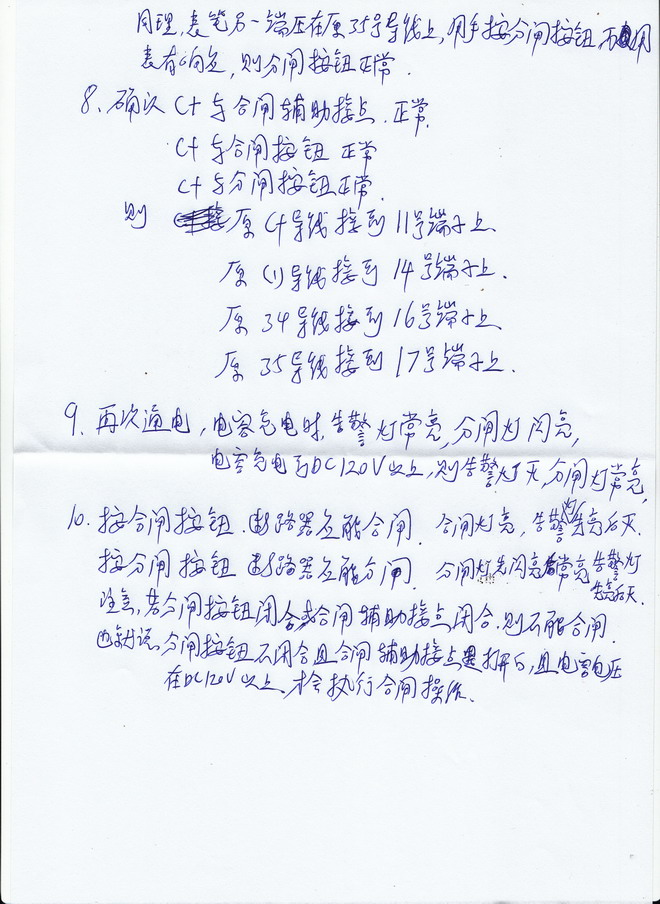 同理,表笔另一端压在原35号导线上,用手按分闸按钮,万用
表有响定,则分闸按钮正常.
8、确认 C+与合闸辅助接点.正常.
C+与合闸按钮 正常
C+与分闸按钮正常.
则 原C+导线接到11号端子上.
原(1)导线接到14号端子上.
原34导线接到16号端子上.
原35导线接到17号端子上.
9、再次通电,电容充电时,告警灯常亮,分闸灯闪亮,
电容充电到DC120V以上,则告警灯灭,分闸灯常亮,
10、按合闸按钮.断路器应能合闸.合闸灯亮,告警灯先亮后灭.
按分闸按钮 断路器应能分闸.分闸灯先闪亮后常亮 告警灯
先亮后灭.
注意,若分闸按钮闭合或合闸辅助接点闭合.则不能合闸.
也就说,分闸按钮不闭合且合闸辅助接点是打开的,且电容电压
在DC120V以上,才会执行合闸操作.